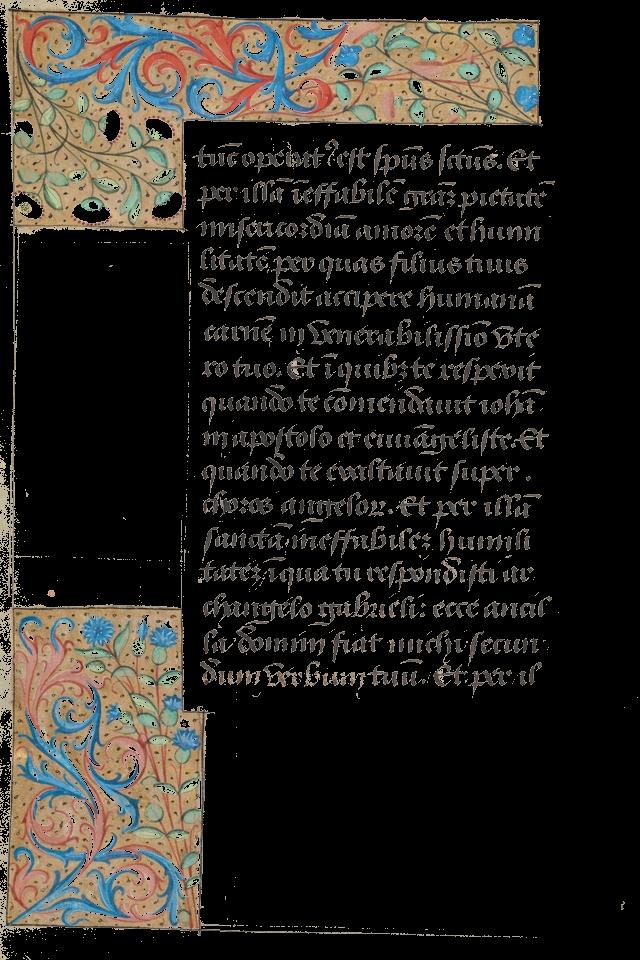 tūc operuit ꝰ est spūs sctūs. Et
per illā īeffabilē grāz pietatē
misericordiā amorē et humi
litatē per quas filius tuus
descendit accipere humanā
carnē in venerabilissīo vte
ro tuo. Et ī quibz te respexit
quando te cōmendauit iohā
ni apostolo et euuāgeliste. Et
quando te exaltauit super .
choros angeloꝝ. Et per illā
sanctā ineffabilez humili
tatez ī qua tu respondisti ar
changelo gabrieli: ecce ancil
la domini fiat michi secun
dum verbum tuū. Et per il